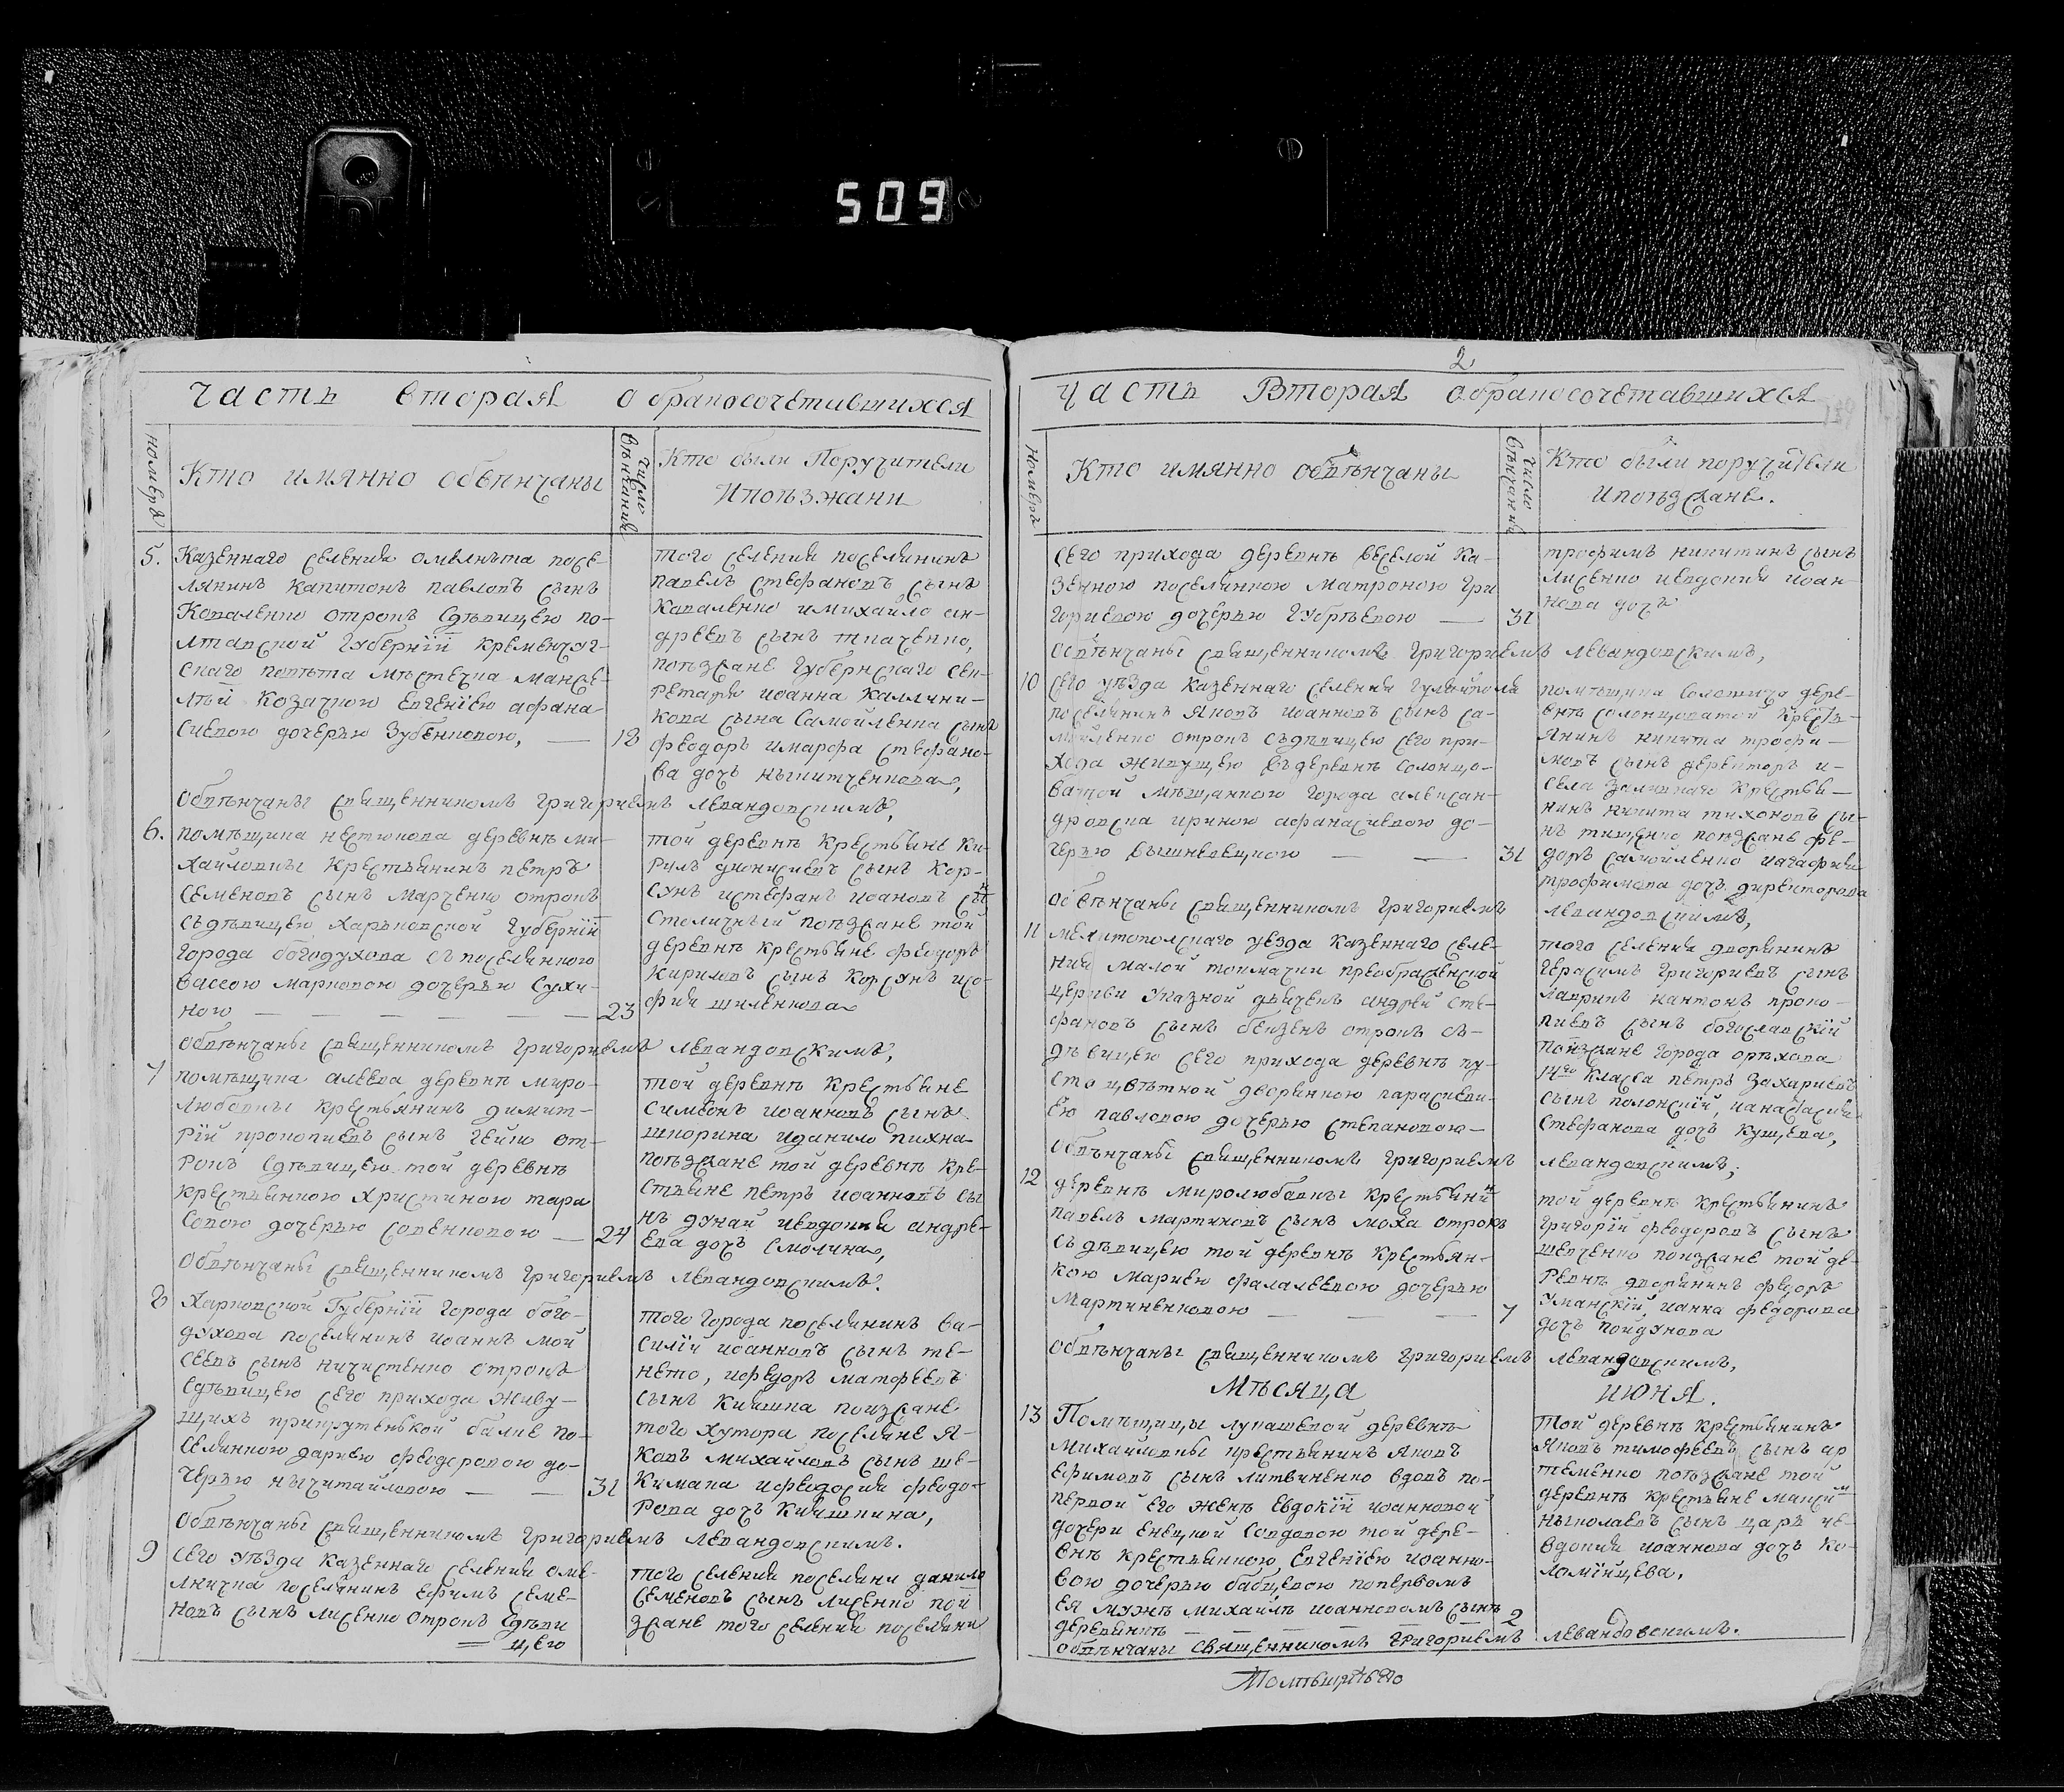 509
Часть вторая о бракосочетавшихся
номеръ
Кто имянно обвѣнчаны
число вѣнчания
Кто были Поручители
И поѣзжани
5. Казеннаго селения Омелныта посе-
лянинъ Капитонъ Павловъ сынъ
Коваленко отрокъ сдѣвицею По-
лтавской Губернїи Кременчуг-
скаго повѣта мѣстечка Манже-
лѣй козачкою Евгенїею Афана
сиевою дочерью Зубенковою, — 18
того селения поселянинъ
Павелъ Стефановъ сынъ
Коваленко и михайло ан-
дреевъ сынъ ткаченко,
поѣзжане Губернскаго сек-
ретаря иоанна Каллини-
кова сына Самойленка сынъ
феодоръ имарфа стефано-
ва дочь
Обвѣнчаны священникомъ Григориемъ Левандовскимъ,
6. помѣщика Нестюкова деревнѣ Ми-
хайловки крестьянинъ петръ
Семеновъ сынъ Марченко отрокъ
съдѣвицею Харьковской Губернїи
города богодухова съ поселянкою
Вассою Марковою дочерью Сухи-
ною — — — — — — 23
той деревнѣ крестьяне Ки-
рилъ дионисиевъ сынъ Кор-
сунъ истефанъ иоановъ сынъ
Столичный поѣзжане той
деревнѣ крестьяне феодоръ
Кириловъ сынъ Корсунъ исо-
фия шиленкова
Обвѣнчаны священникомъ Григориемъ Левандовскимъ,
7 помѣщика алеева деревнѣ миро-
любовки крестьянинъ димит-
рїй прокопиевъ сынъ Гейко от-
рокъ сдѣвицею той деревнѣ
крестьянкою Христиною тара
совою дочерью совенковою — 24
той деревнѣ крестьяне
Симеонъ иоанновъ сынъ
шпорина иданило пихна
поѣзжане той деревнѣ кре-
стьяне петръ иоанновъ сы
нъ дунай иевдокия андре-
ева дочь Смолина,
Обвѣнчаны священникомъ Григориемъ Левандовскимъ.
8 Харковской Губернїи города бого-
духова поселянинъ иоаннъ мой
сеевъ сынъ ничистенко отрокъ
сдѣвицею сего прихода живу-
щихъ прикрутенькой балке по-
селянкою дариею феодоровою до-
черью — — 31
того города поселянинъ ва-
силїй иоанновъ сынъ те-
нето, ифедоръ матфеевъ
сынъ Кияшка поизжане
того хутора поселяне я-
ковъ михайловъ сынъ ше-
кимака ифеодосия феодо-
рова дочь Кияшкина,
Обвѣнчаны священникомъ Григориемъ Левандовскимъ.
9 сего уѣзда казеннаго селения оме-
лничка поселянинъ Ефимъ семе-
новъ сынъ лисенко отрокъ сдѣви
— цею
того селения поселяни данило
семеновъ сынъ лисенко пой
зжане того селения поселяни
2
Часть Вторая о бракосочетавшихся
номеръ
Кто имянно обвѣнчаны
число вѣнчания
Кто были поручители
И поѣзжане.
сего прихода деревнѣ веселой ка-
зенною поселянкою Матроною Гри
гориевою дочерью Губрѣевою — 31
трофимъ никитинъ сынъ
лисенко иевдокия иоан-
нова дочь
Обвѣнчаны священникомъ Григориемъ Левандовскимъ,
10 сего уѣзда казеннаго селения гуляйполя
поселянинъ яковъ иоанновъ сынъ са-
мойленко отрокъ съдѣвицею сего при-
хода живущею въдеревнѣ солонцо-
ватой мѣщанкою города алексан-
дровска ириною афанасиевою до-
черью вышневецкою — — 31
помѣщика дере-
внѣ солонцоватой кресть-
янинъ никита трофи-
мовъ сынъ деректоръ и-
села крестья-
нинъ никита тихоновъ сы-
нъ тищенко поѣзжане фе-
доръ самойленко иагафия
трофимова дочь директорова
Обвѣнчаны священникомъ Григориемъ Левандовскимъ,
11 мелитопольскаго уезда казеннаго селе-
ния малой токмачки преображенской
церкви указной дьячекъ андрей сте-
фановъ сынъ отрокъ съ-
дѣвицею сего прихода деревнѣ пу-
сто цвѣтной дворянкою параскеви-
ею павловою дочерью степановою —
того селения дворянинъ
герасимъ григориевъ сынъ
лаврикъ иантонъ проко-
пиевъ сынъ богославскїй
поизжане города орѣхова
14го класса петръ Захариевъ
сынъ полонскїй, ианастасия
Стефанова дочь кущева,
Обвѣнчаны священникомъ Григориемъ Левандовскимъ,
12 деревнѣ миролюбовки крестьянинъ
павелъ мартиновъ сынъ моха отрокъ
съ дѣвицею той деревнѣ крестьян-
кою мариею фалалеевою дочерью
мартиненковою — — — 7
той деревнѣ крестьянинъ
григорїй феодоровъ сынъ
шевченко поизжане той де-
ревнѣ дворянинъ федоръ
уманскїй, ианна федорова
дочь пойдунова
Обвѣнчаны священникомъ Григориемъ Левандовскимъ,
Мѣсяца июня.
13 Помѣщицы лукашевой деревнѣ
михайловки крестьянинъ яковъ
ефимовъ сынъ литвиненко вдовъ по-
первой его женѣ евдокїи иоанновой
дочери енецкой совдовою той дере-
внѣ крестьянкою Евгенїею иоанно-
вою дочерью бабцевою попервомъ
ея мужѣ михаилѣ иоанновомъ сынѣ
деревянкѣ — — — — — 2
той деревнѣ крестьянинъ
яковъ тимофеевъ сынъ ар
теменко поѣзжане той
деревнѣ крестьяне максимъ
ныколаевъ сынъ царъ ие-
вдокия иоаннова дочь ко-
ломїйцева,
Обвѣнчаны священникомъ Григориемъ Левандовскимъ.